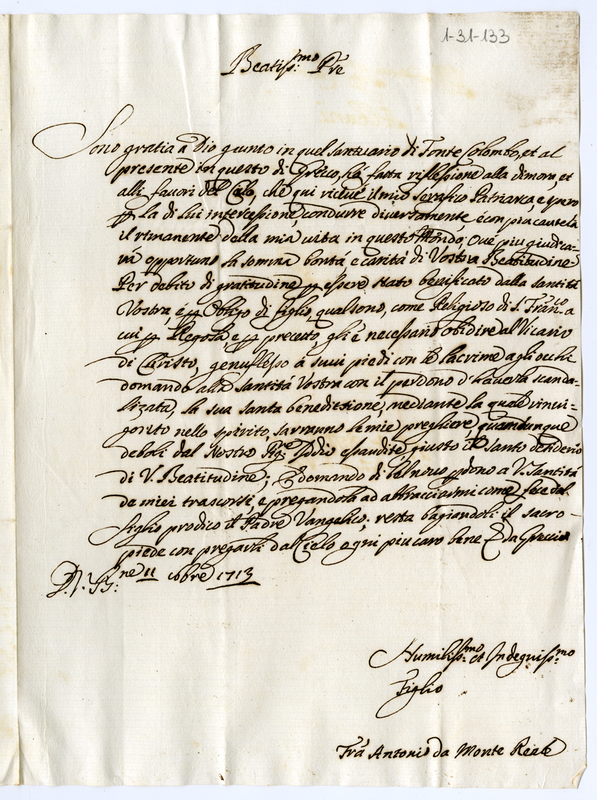 1-31-133
Beatiss:mo Pre
Sono gratia a Dio giunto in quel santuario di Fonte Colombo, et al
presente in questo di Greccio, hò fatta riflessione alla dimora, et
alli favori del Cielo, che qui riceve il mio serafico Patriarca e spero
la di lui intercessione, condurre diversamente e con più cautela
il rimanente della mia vita in questo Mondo, ove più giudica-
rà opportuno la somma bontà e carità di Vostra Beatitudine
Per debito di gratitudine essere stato beneficato dalla Santità
Vostra, è obligo di figlio, qual sono, come Religioso di S. Franco a
cui Regola, e precetto, gli è necessario obidire al Vicario
di Christo, genuflesso à suoi piedi con le lacrime agli occhi
domando alla Santità Vostra con il perdono d'haverla scanda-
lizata, la sua santa benedittione, mediante la quale rinvi-
gorito nello spirito, saranno le mie preghiere, quantunque
deboli dal Nostro Iddio esaudite, giusto il santo desiderio
di V. Beatitudine; domando di bel nuovo pdono a V. Santità
de miei trascorsi, e pregandola ad abbracciarmi come fece dal
figlio prodico il Padre Vangelico: resta bagiandoli il sacro
piede con pregarli dal Cielo ogni più caro bene da Greccio
ne 11 obre 1713
Humiliss:mo et Indegniss:mo
Figlio
Frà Antonio da Monte Reale